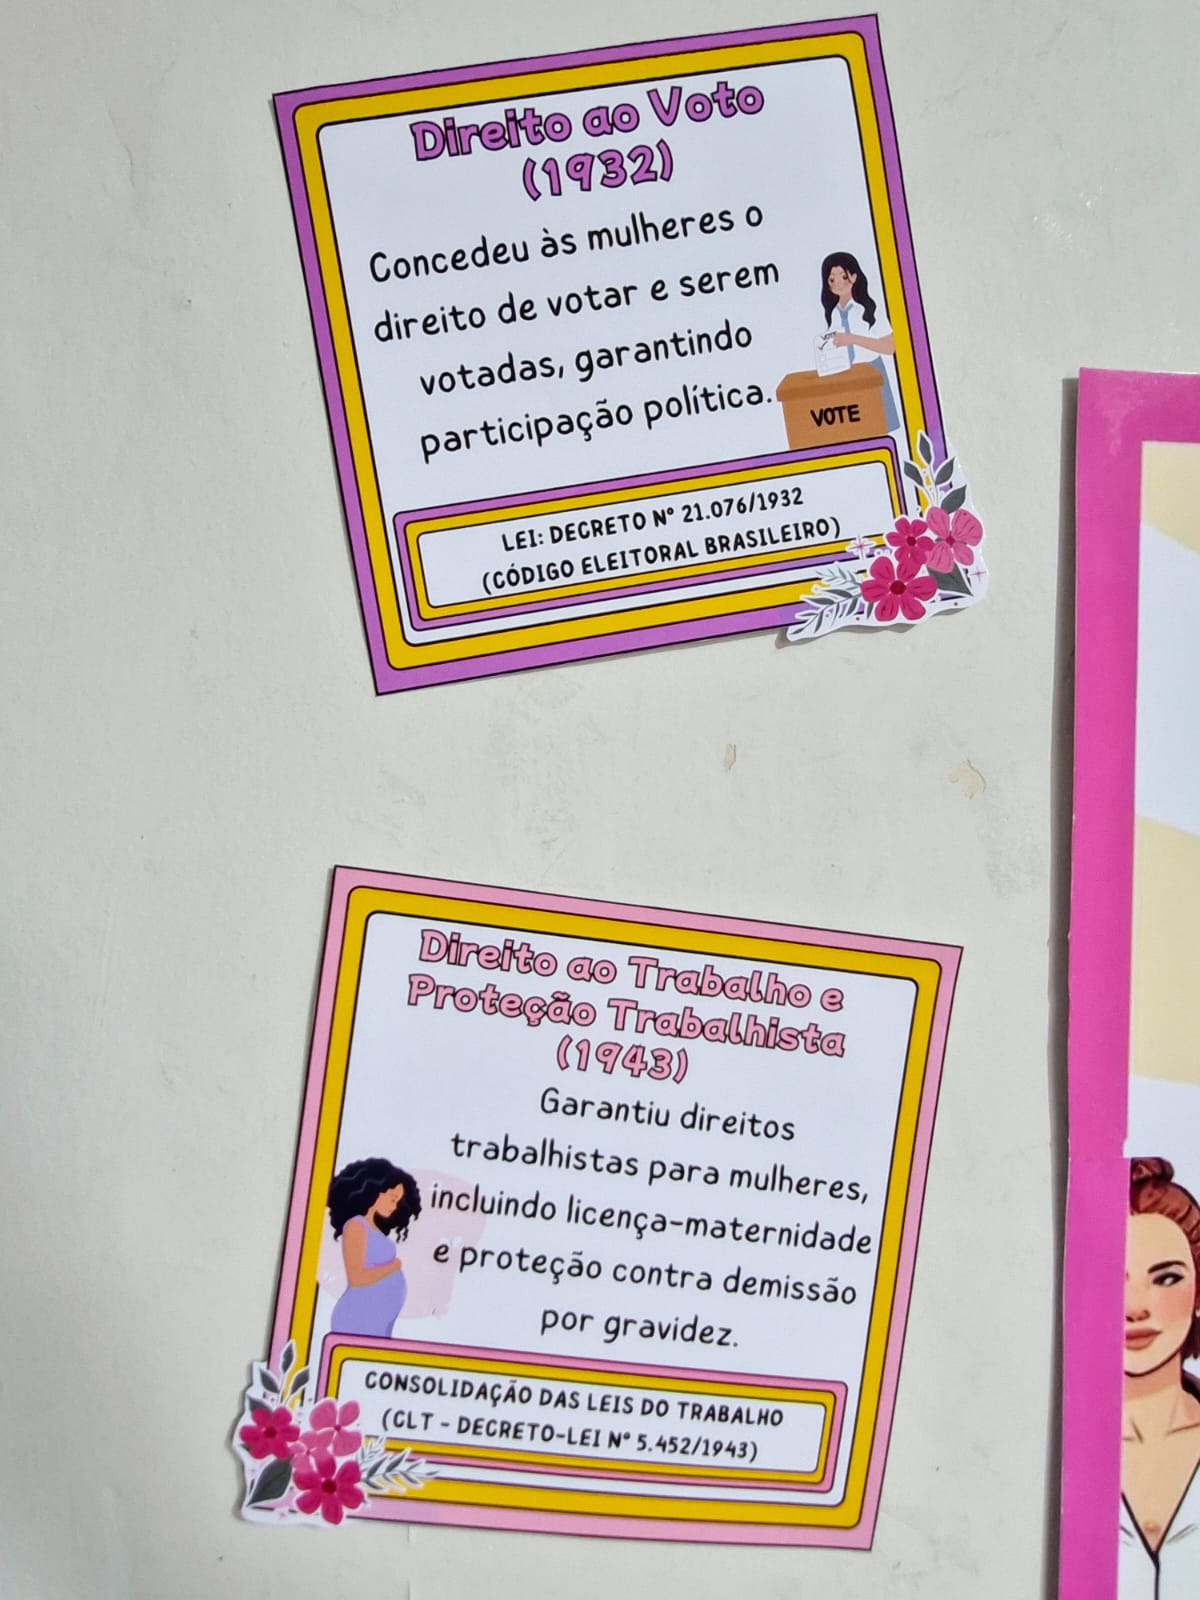 Direito ao Voto
(1932)
Concedeu às mulheres o
direito de votar e serem
votadas, garantindo
participação política.
VOTE
VOTE
LEI: DECRETO Nº 21.076/1932
(CÓDIGO ELEITORAL BRASILEIRO)
Direito ao Trabalho e
Proteção Trabalhista
(1943)
Garantiu direitos
trabalhistas para mulheres,
incluindo licença-maternidade
e proteção contra demissão
por gravidez.
CONSOLIDAÇÃO DAS LEIS DO TRABALHO
(CLT - DECRETO-LEI Nº 5.452/1943)